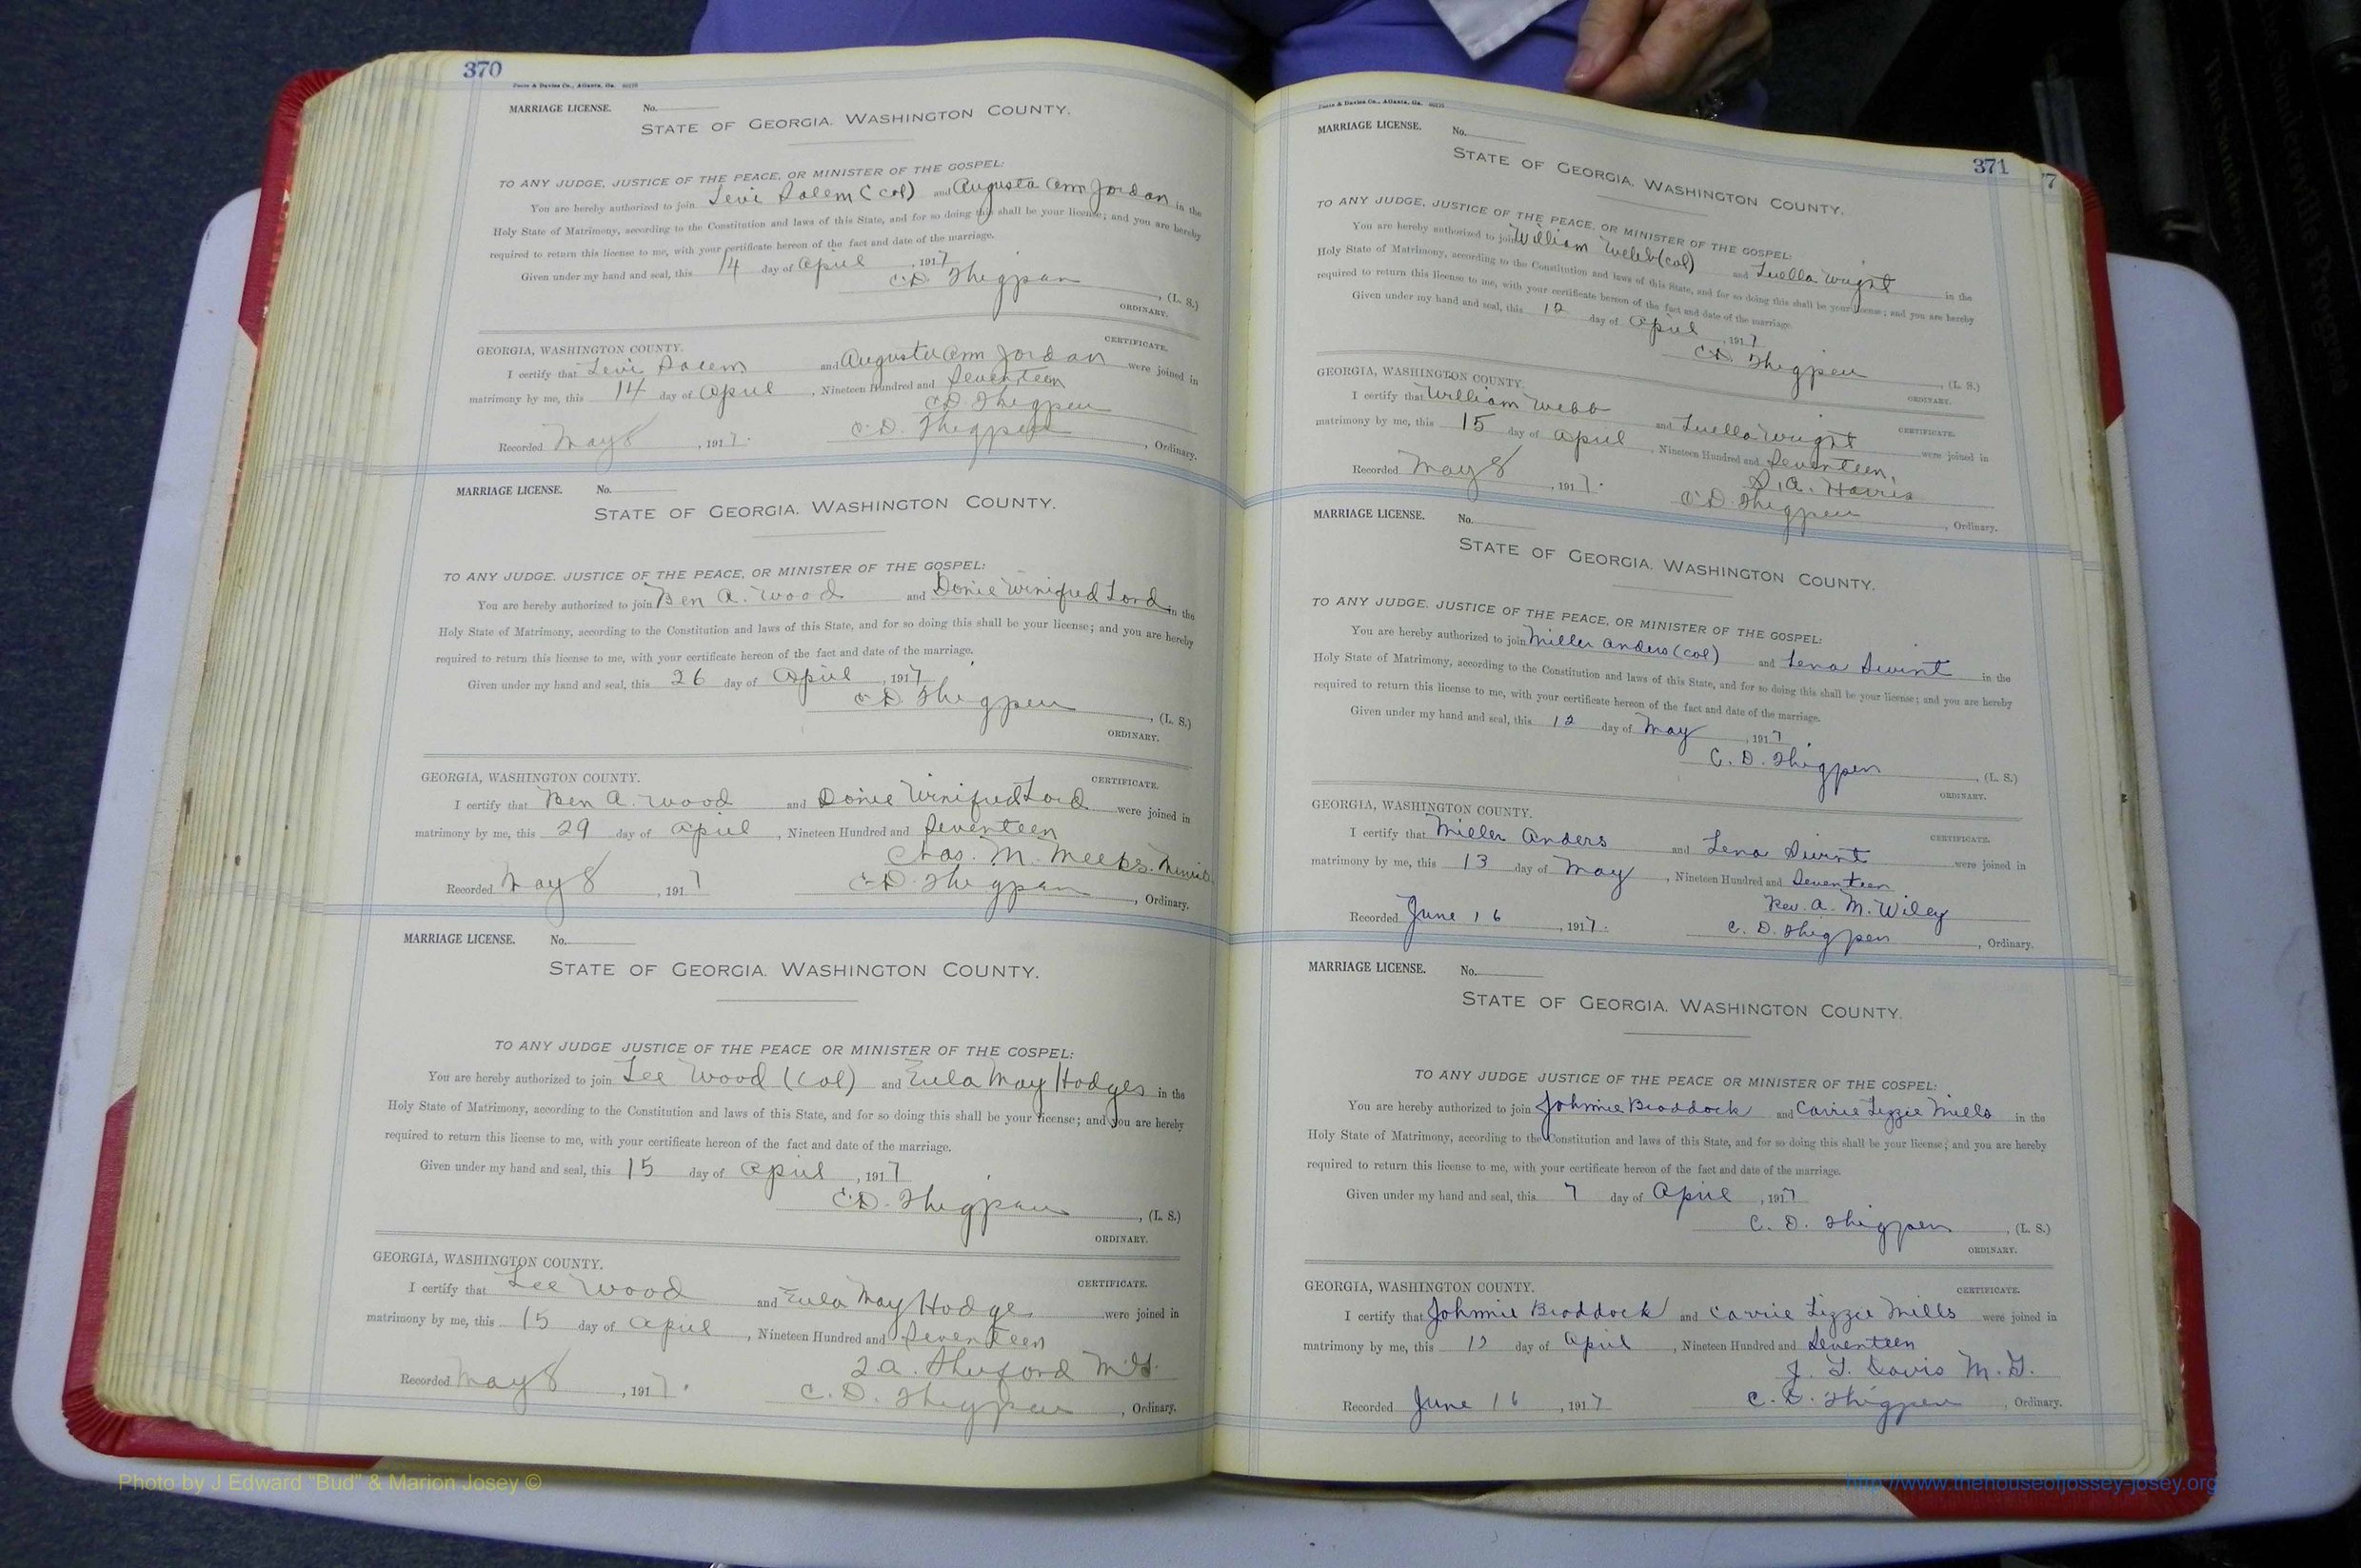 370
Foote & Davies Co., Atlanta, Ga.
MARRIAGE LICENSE. No.
STATE OF GEORGIA. WASHINGTON COUNTY.
TO ANY JUDGE, JUSTICE OF THE PEACE, OR MINISTER OF THE GOSPEL:
You are hereby authorized to join Levi Salem (col) and Augusta Ann Jordan in the
Holy State of Matrimony, according to the Constitution and laws of this State, and for so doing this shall be your license; and you are hereby
required to return this license to me, with your certificate hereon of the fact and date of the marriage.
Given under my hand and seal, this 14 day of April, 1917
C.D. Thigpen, (L. S.)
ORDINARY.
CERTIFICATE.
GEORGIA, WASHINGTON COUNTY.
I certify that Levi Salem and Augusta Ann Jordan were joined in
matrimony by me, this 14 day of April, Nineteen Hundred and Seventeen
C.D. Thigpen
Recorded May 8, 1917. C.D. Thigpen, Ordinary.
MARRIAGE LICENSE. No.
STATE OF GEORGIA. WASHINGTON COUNTY.
TO ANY JUDGE, JUSTICE OF THE PEACE, OR MINISTER OF THE GOSPEL:
You are hereby authorized to join Ben A. Wood and Donie Winifred Lord in the
Holy State of Matrimony, according to the Constitution and laws of this State, and for so doing this shall be your license; and you are hereby
required to return this license to me, with your certificate hereon of the fact and date of the marriage.
Given under my hand and seal, this 26 day of April, 1917
C.D. Thigpen, (L. S.)
ORDINARY.
GEORGIA, WASHINGTON COUNTY. CERTIFICATE.
I certify that Ben A. Wood and Donie Winifred Lord were joined in
matrimony by me, this 29 day of April, Nineteen Hundred and Seventeen
Chas. M. Meeks.
Recorded May 8, 1917 C.D. Thigpen, Ordinary.
MARRIAGE LICENSE. No.
STATE OF GEORGIA. WASHINGTON COUNTY.
TO ANY JUDGE JUSTICE OF THE PEACE OR MINISTER OF THE GOSPEL:
You are hereby authorized to join Lee Wood (Col) and Eula May Hodges in the
Holy State of Matrimony, according to the Constitution and laws of this State, and for so doing this shall be your license; and you are hereby
required to return this license to me, with your certificate hereon of the fact and date of the marriage.
Given under my hand and seal, this 15 day of April, 1917
C.D. Thigpen, (L. S.)
ORDINARY.
GEORGIA, WASHINGTON COUNTY. CERTIFICATE.
I certify that Lee Wood and Eula May Hodge were joined in
matrimony by me, this 15 day of April, Nineteen Hundred and Seventeen
Recorded May 8, 1917. C. D. Thigpen, Ordinary.
371
Foote & Davies Co., Atlanta, Ga.
MARRIAGE LICENSE. No.
STATE OF GEORGIA. WASHINGTON COUNTY.
TO ANY JUDGE, JUSTICE OF THE PEACE, OR MINISTER OF THE GOSPEL:
You are hereby authorized to join William Webb (col) and Luella Wright in the
Holy State of Matrimony, according to the Constitution and laws of this State, and for so doing this shall be your license; and you are hereby
required to return this license to me, with your certificate hereon of the fact and date of the marriage.
Given under my hand and seal, this 12 day of April, 1917
C.D. Thigpen, (L. S.)
ORDINARY.
GEORGIA, WASHINGTON COUNTY. CERTIFICATE.
I certify that William Webb and Luella Wright were joined in
matrimony by me, this 15 day of April, Nineteen Hundred and Seventeen,
S.A. Harris
Recorded May 8, 1917. C.D. Thigpen, Ordinary.
MARRIAGE LICENSE. No.
STATE OF GEORGIA. WASHINGTON COUNTY.
TO ANY JUDGE, JUSTICE OF THE PEACE, OR MINISTER OF THE GOSPEL:
You are hereby authorized to join Miller Anders (col) and Lena Swint in the
Holy State of Matrimony, according to the Constitution and laws of this State, and for so doing this shall be your license; and you are hereby
required to return this license to me, with your certificate hereon of the fact and date of the marriage.
Given under my hand and seal, this 12 day of May, 1917.
C. D. Thigpen, (L. S.)
ORDINARY.
GEORGIA, WASHINGTON COUNTY. CERTIFICATE.
I certify that Miller Anders and Lena Swint were joined in
matrimony by me, this 13 day of May, Nineteen Hundred and Seventeen
Rev. A. M. Wiley
Recorded June 16, 1917. C. D. Thigpen, Ordinary.
MARRIAGE LICENSE. No.
STATE OF GEORGIA. WASHINGTON COUNTY.
TO ANY JUDGE JUSTICE OF THE PEACE OR MINISTER OF THE GOSPEL:
You are hereby authorized to join Johnnie Braddock and Carrie Lizzie Mills in the
Holy State of Matrimony, according to the Constitution and laws of this State, and for so doing this shall be your license; and you are hereby
required to return this license to me, with your certificate hereon of the fact and date of the marriage.
Given under my hand and seal, this 7 day of April, 1917
C. D. Thigpen, (L. S.)
ORDINARY.
GEORGIA, WASHINGTON COUNTY. CERTIFICATE.
I certify that Johnnie Braddock and Carrie Lizzie Mills were joined in
matrimony by me, this 12 day of April, Nineteen Hundred and Seventeen
Davis M.G.
Recorded June 16, 1917 C. D. Thigpen, Ordinary.
Photo by J Edward "Bud" & Marion Josey ©
http://www.thehouseofjossey-josey.org